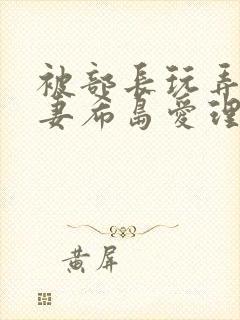 被部長玩弄
妻希島愛理
黄屏